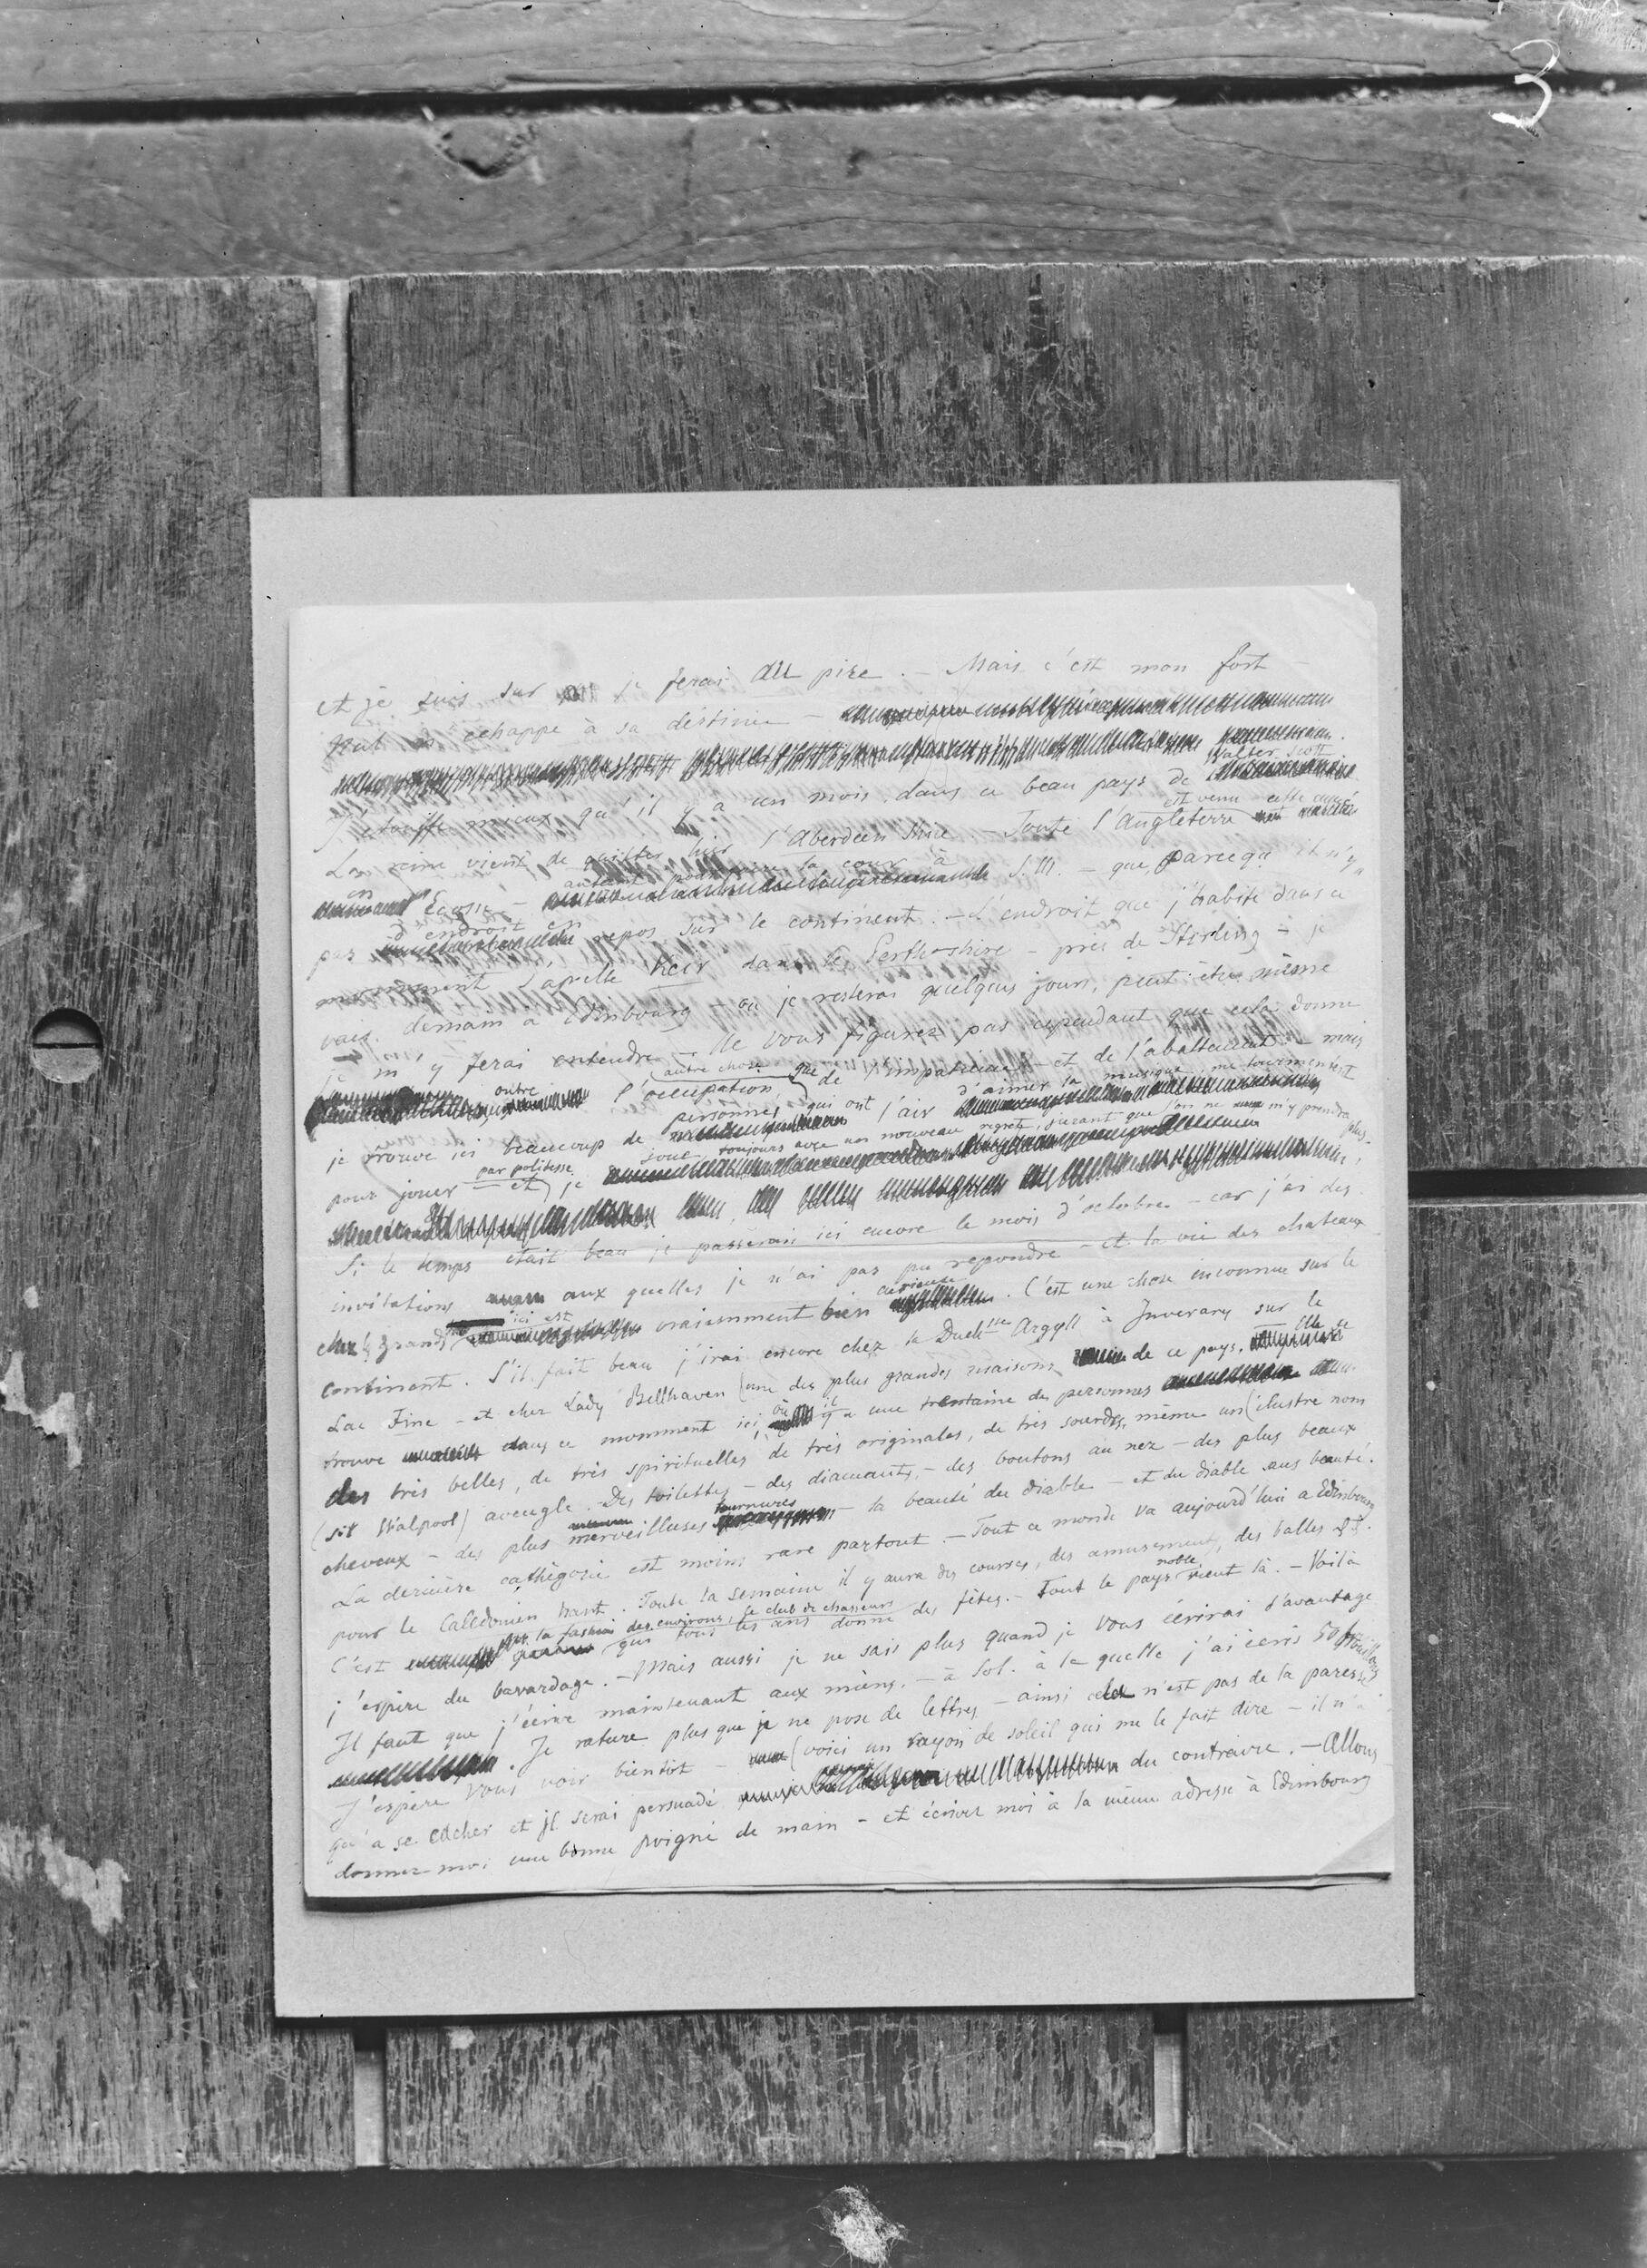 3
et je suis sur je ferai du pire. – Mais c'est mon fort –
Nul n'échappe à sa déstinée –
Walter Scott
J'étouffe mieux qu'il y a un mois, dans ce beau pays de
est venu cette année
La reine vient de quitter hier l'Aberdeen Shire – Toute l'Angleterre
en
Ecosse – autant pour la cour à S. M. – que parcequ'il n'y a
pas d'endroit en repos sur le continent. – L'endroit que j'habite dans ce
momment s'apelle Keir dans le Perth-shire – près de Stirling – je
vais demain a Edimbourg – ou je resterai quelques jours, peut être même
je m'y ferai entendre – Ne vous figurez pas cependant que cela donne
outre l'occupation autre chose que de l'impatience – et de l'abattement – mais
je trouve ici beaucoup de personnes qui ont l'air d'aimer la musique me tourmentent
pour jouer – et par politesse je joue toujours avec un nouveau regret, jurant que l'on ne m'y prendra plus.
Si le temps était beau je passerais ici encore le mois d'octobre – car j'ai des
invitations aux quelles je n'ai pas pu repondre – et la vie des chateaux
chez les grands ici est vraiemment bien curieuse. C'est une chose inconnue sur le
continent. S'il fait beau j'irai encore chez la Duchsse Argyll à Inverary sur le
Lac Fine – et chez Lady Bellhaven (une des plus grandes maisons de ce pays. Elle se
trouve dans ce momment ici, où il y a une trentaine de personnes
des très belles, de très spirituelles de très originales, de très sourdes, même un (ilustre nom
(sit Walpool) aveugle. Des toilettes – des diamants, – des boutons au nez – des plus beaux
cheveux – des plus merveilleuses tournures – la beauté du diable – et du diable sans beauté.
La dérnière cathégorie est moins rare partout. – Tout ce monde va aujourd'hui a Edimbourg
pour le Caledonien hant. Toute la semaine il y aura des courses, des amusements, des balles &t.
C'est la fashion des environs, le club de chasseurs qui tous les ans donne des fêtes. – Tout le pays noble vient là. – Voilà
j'espère du bavardage. – Mais aussi je ne sais plus quand je vous écrirai d'avantage
Il faut que j'écrive maintenant aux miens. – à Sol. à la quelle j'ai écris 50 brouillons
Je rature plus que je ne pose de lettres – ainsi cela n'est pas de la paresse
J'espère vous voir bientot – (voici un rayon de soleil qui me le fait dire – il n'a
qu'a se cacher et je serai persuadé du contraire. – Allons
donnez moi une bonne poigné de main – et écrivez moi à la même adresse à Edimbourg